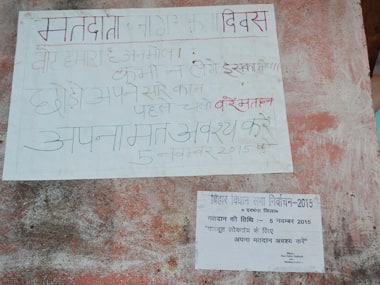 मतदाता जागरूकता दिवस
वोट हमारा है अनमोल।
कभी न लेंगे इसका मोल।
छोड़ो अपने सारे काम
पहले चलो करें मतदान
अपना मत अवश्य करें
5 नवम्बर 2015 को
बिहार विधान सभा निर्वाचन-2015
मतदान की तिथि :- 5 नवम्बर 2015
"मजबूत लोकतंत्र के लिए
अपना मतदान अवश्य करें"